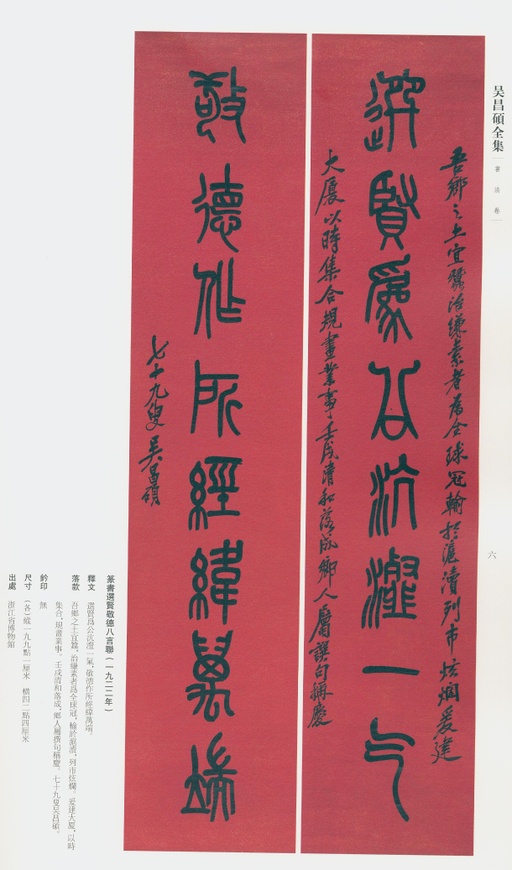 吴昌碩全集
書法卷
六
選賢為公沆瀣一气
吾鄉之土宜蠶治縑素者為全球冠輸於滬瀆列市炫爛爰建
大厦以時集合規畫業事壬戌清和落成鄉人屬譔句稱慶
敬德作所經緯萬端
七十九叟吳昌碩
篆書選賢敬德八言聯（一九二二年）
釋文 選賢爲公沆瀣一氣，敬德作所經緯萬端。
落款 吾鄉之土宜蠶，治縑素者爲全球冠，輸於滬瀆，列市炫爛。爰建大厦，以時
集合，規畫業事。壬戌清和落成，鄉人屬譔句稱慶。七十九叟吴昌碩。
鈐印 無
尺寸 （各）縱一九九點一厘米 横四二點四厘米
出處 浙江省博物館